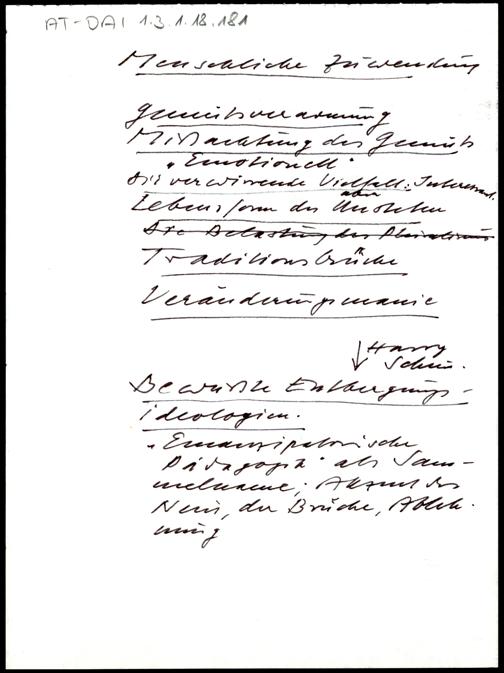 AT-DAI 1.3.1.18.181
Menschliche Zuwendung
Gemütsverarmung
Missachtung des Gemüts
"Emotionell"
die verwirrende Vielfalt: Interessant.
aber
Lebensform des Unsteten
Die Belastung des Pluralismus
Traditionsbrüche
Veränderungsmanie
↓ Harry
Bewusste Entbergungs-
ideologien.
"Emanzipatorische
Pädagogik" als Sam-
melname; Akzent des
Neins, der Brüche, Ableh-
nung